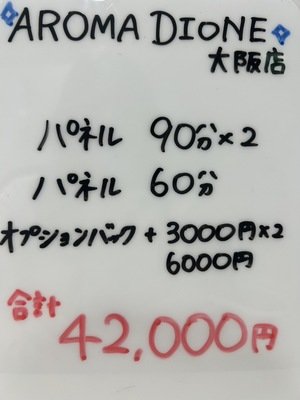 AROMA DIONE
大阪店
パネル 90分×2
パネル 60分
オプションバック + 3000円×2
6000円
合計
42,000円